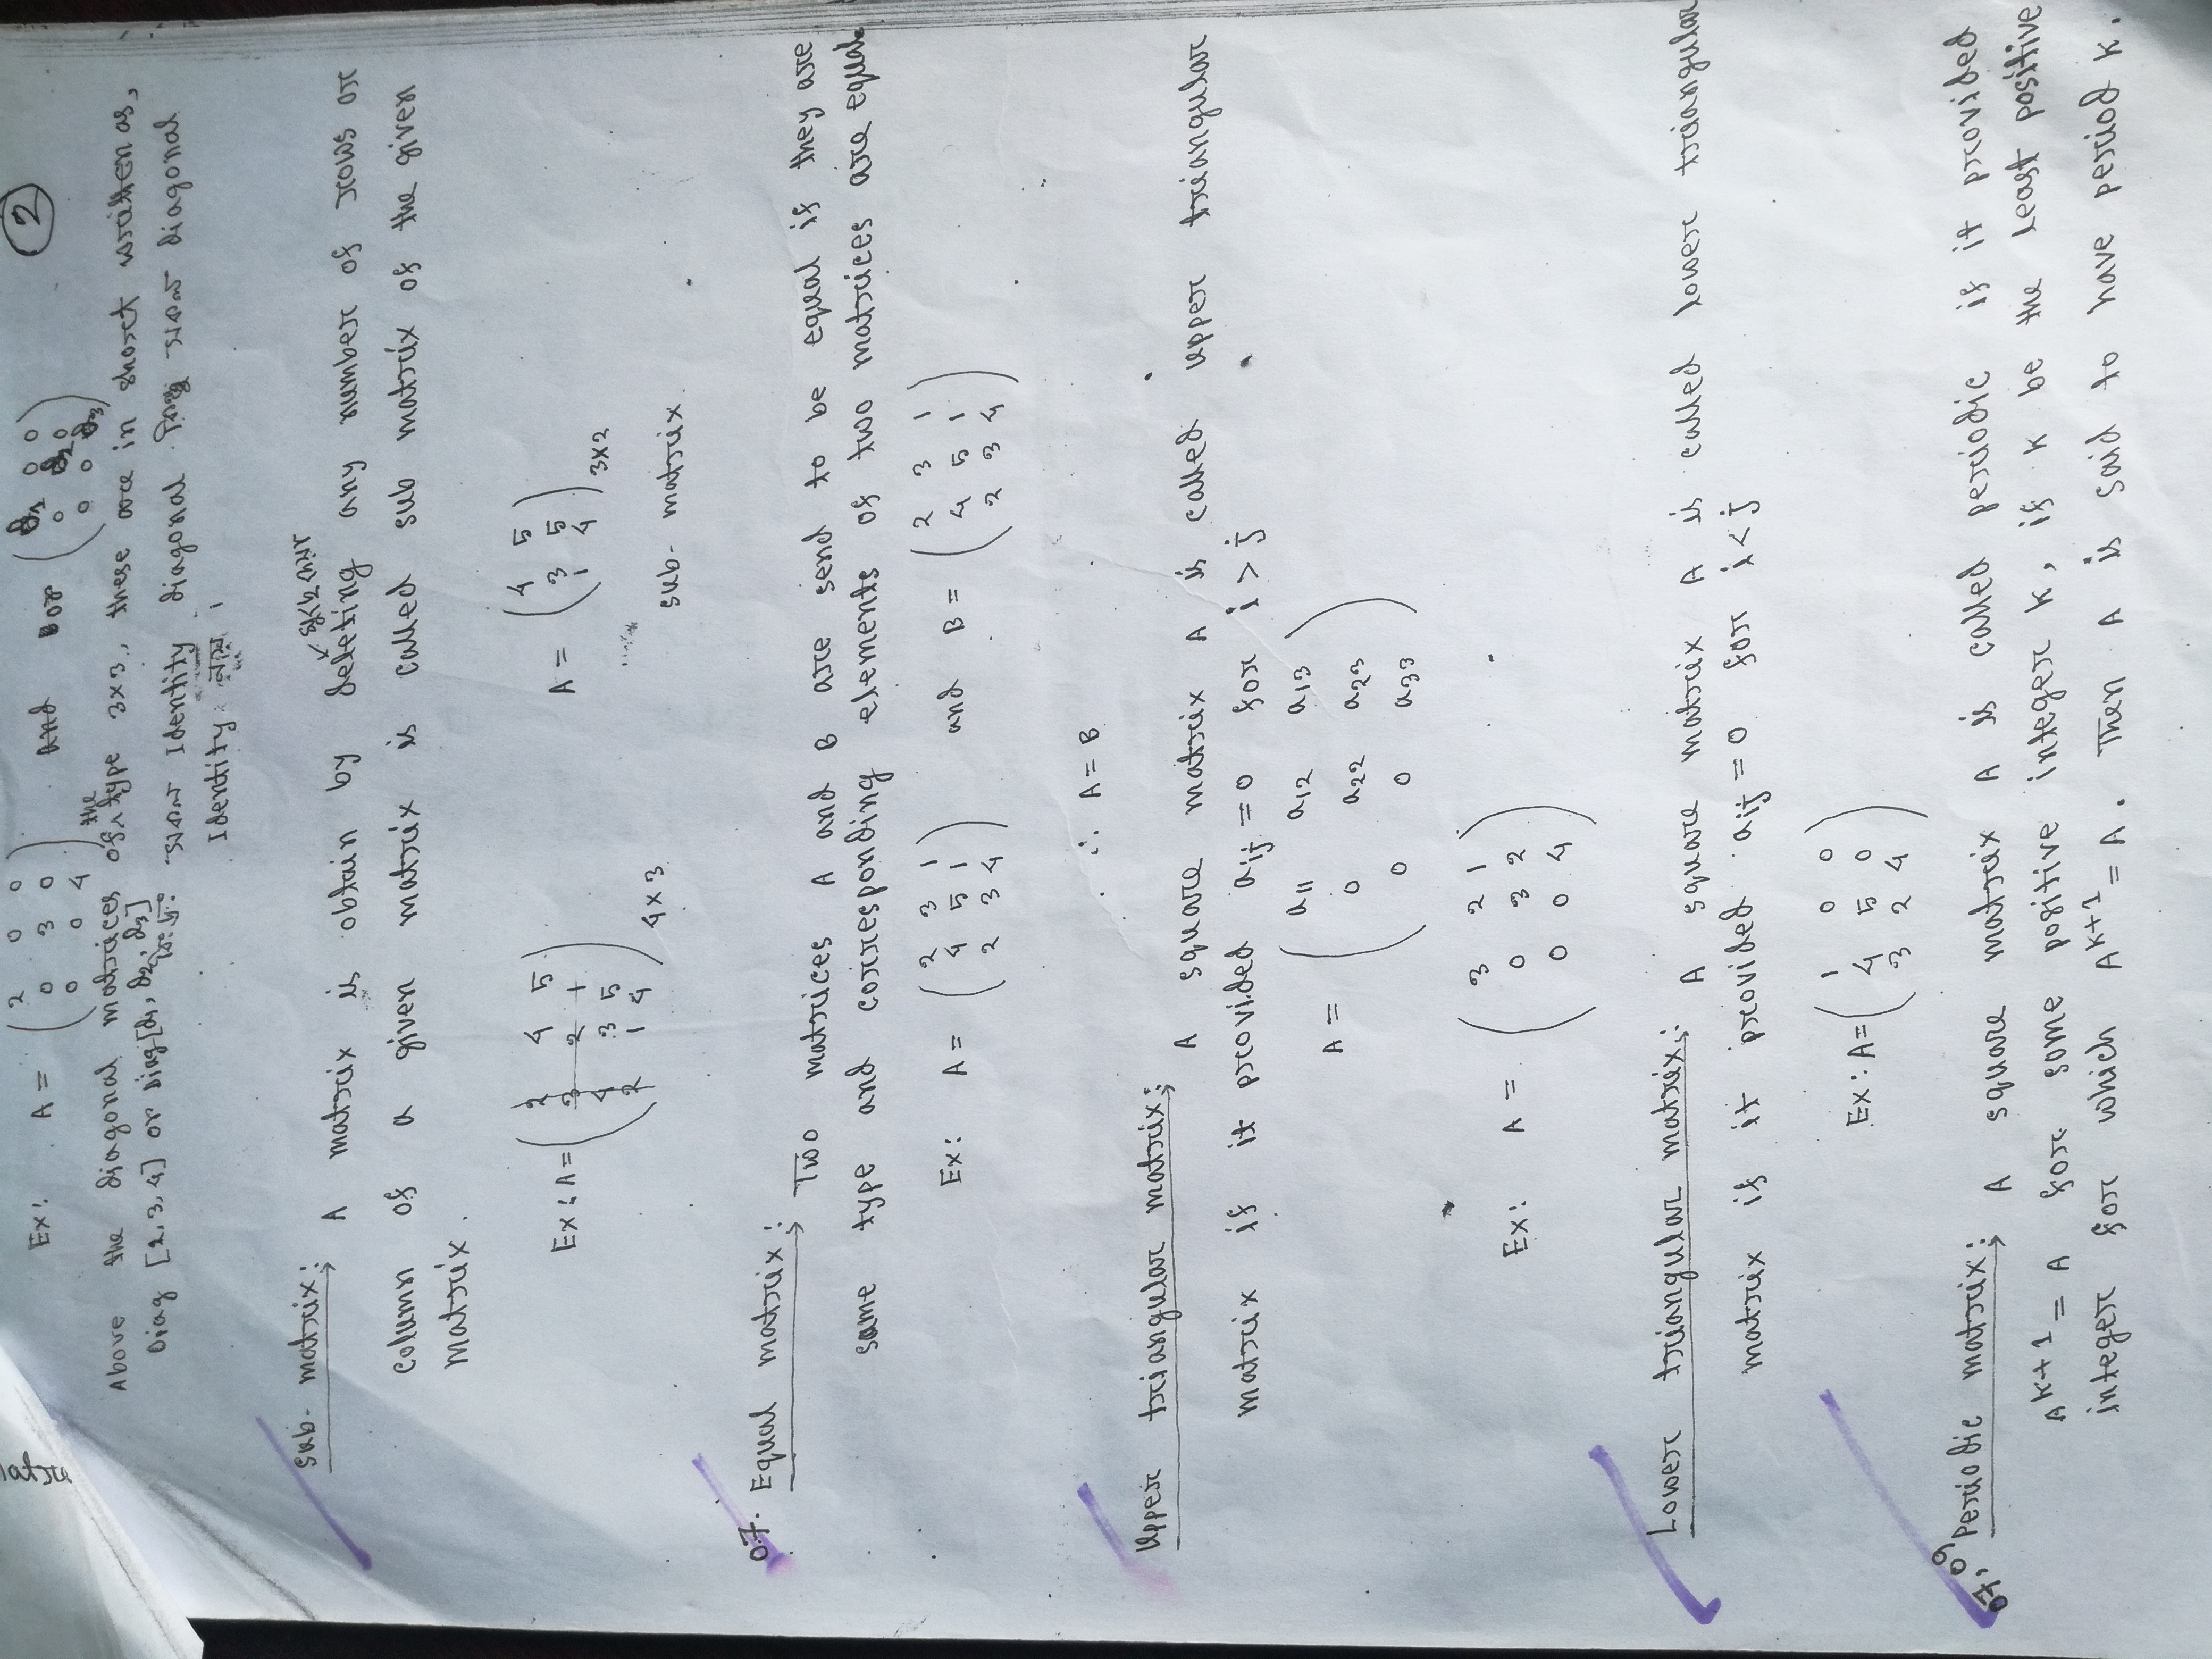 2
Ex: A = (2 0 0
0 3 0
0 0 4) and D or (d1 0 0
0 d2 0
0 0 d3)
Above the diagonal matrices of the type 3×3, these are in short written as,
Diag [2, 3, 4] or Diag [d1, d2, d3]
বিঃ দ্রঃ সকল Identity diagonal কিন্তু সকল diagonal
Identity নয়।
Sub-matrix:
A matrix is obtain by deleting any number of rows or
column of a given matrix is called sub matrix of the given
matrix.
Ex: A = (2 4 5
3 2 1
4 3 5
2 1 4) 4×3
A = (4 5
3 5
1 4) 3×2
sub-matrix
07. Equal matrix:
Two matrices A and B are send to be equal if they are
same type and corresponding elements of two matrices are equal.
Ex: A = (2 3 1
4 5 1
2 3 4) and B = (2 3 1
4 5 1
2 3 4)
∴ A = B
Upper triangular matrix:
A square matrix A is called upper triangular
matrix if it provided aij = 0 for i > j
A = (a11 a12 a13
0 a22 a23
0 0 a33)
Ex: A = (3 2 1
0 3 2
0 0 4)
Lower triangular matrix: A square matrix A is called lower triangular
matrix if it provided aij = 0 for i < j
Ex: A = (1 0 0
4 5 0
3 2 4)
07, 09 Periodic matrix: A square matrix A is called periodic if it provided
A^k+1 = A for some positive integer k, if k be the least positive
integer for which A^k+1 = A. Then A is said to have period k.